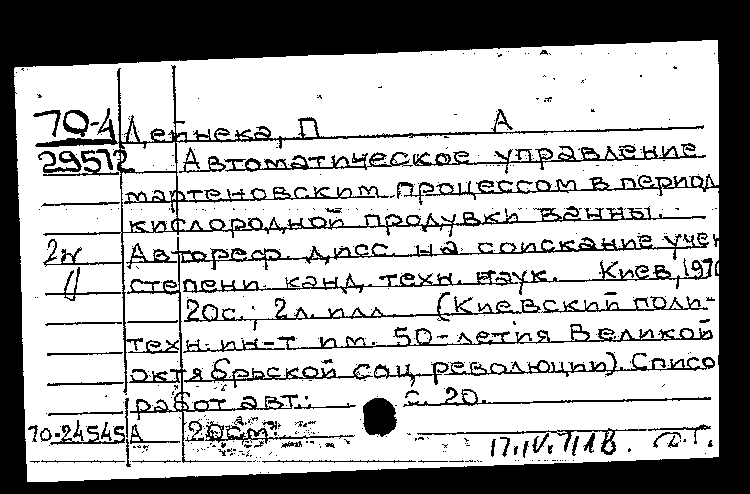 70-4 Дейнека, П А
29572 Автоматическое управление
мартеновским процессом в период
кислородной продувки ванны.
Автореф. дисс. на соискание учен
степени канд. техн. наук. Киев, 1970
20с.; 2л. илл. (Киевский поли-
техн. ин-т им. 50-летия Великой
октябрьской соц. революции). Списо
работ авт.: с. 20.
70-24545 А 20см.
17.IV.71 В. Д.Г.